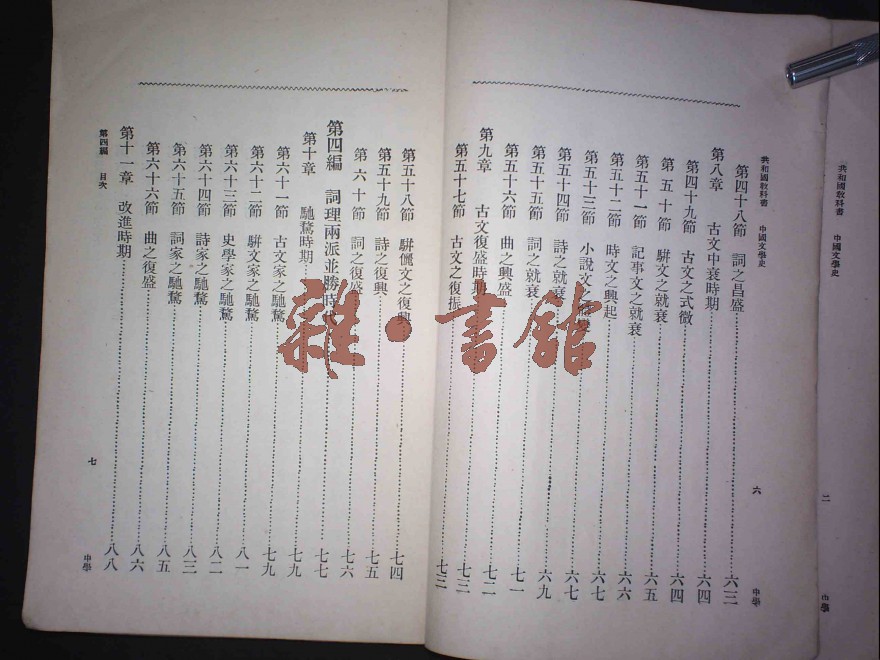 共和國教科書 中國文學史
二
中學
共和國教科書 中國文學史
六
中學
第四十八節 詞之昌盛 六三
第八章 古文中衰時期 六四
第四十九節 古文之式微 六四
第五十節 駢文之就衰 六五
第五十一節 記事文之就衰 六六
第五十二節 時文之興起 六七
第五十三節 小說文 六七
第五十四節 詩之就衰 六九
第五十五節 詞之就衰 七一
第五十六節 曲之興盛 七二
第九章 古文復盛時期 七三
第五十七節 古文之復振 七三
第五十八節 駢儷文之復興 七四
第五十九節 詩之復興 七五
第六十節 詞之復盛 七六
第四編 詞理兩派並勝時代 七七
第十章 馳騖時期 七九
第六十一節 古文家之馳騖 七九
第六十二節 駢文家之馳騖 八一
第六十三節 史學家之馳騖 八二
第六十四節 詩家之馳騖 八三
第六十五節 詞家之馳騖 八五
第六十六節 曲之復盛 八六
第十一章 改進時期 八八
第四編 目次
七
中學
雜·書館